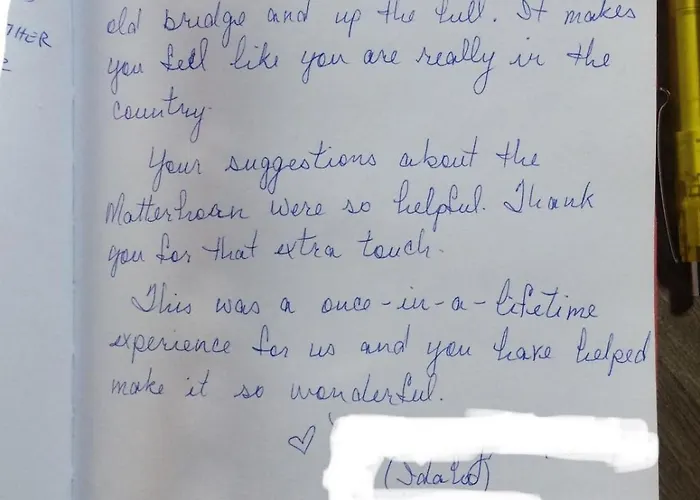 THER
old bridge and up the hill. It makes
you feel like you are really in the
country.
Your suggestions about the
Matterhoan were so helpful. Thank
you for that extra touch.
This was a once-in-a-lifetime
experience for us and you have helped
make it so wonderful.
♡